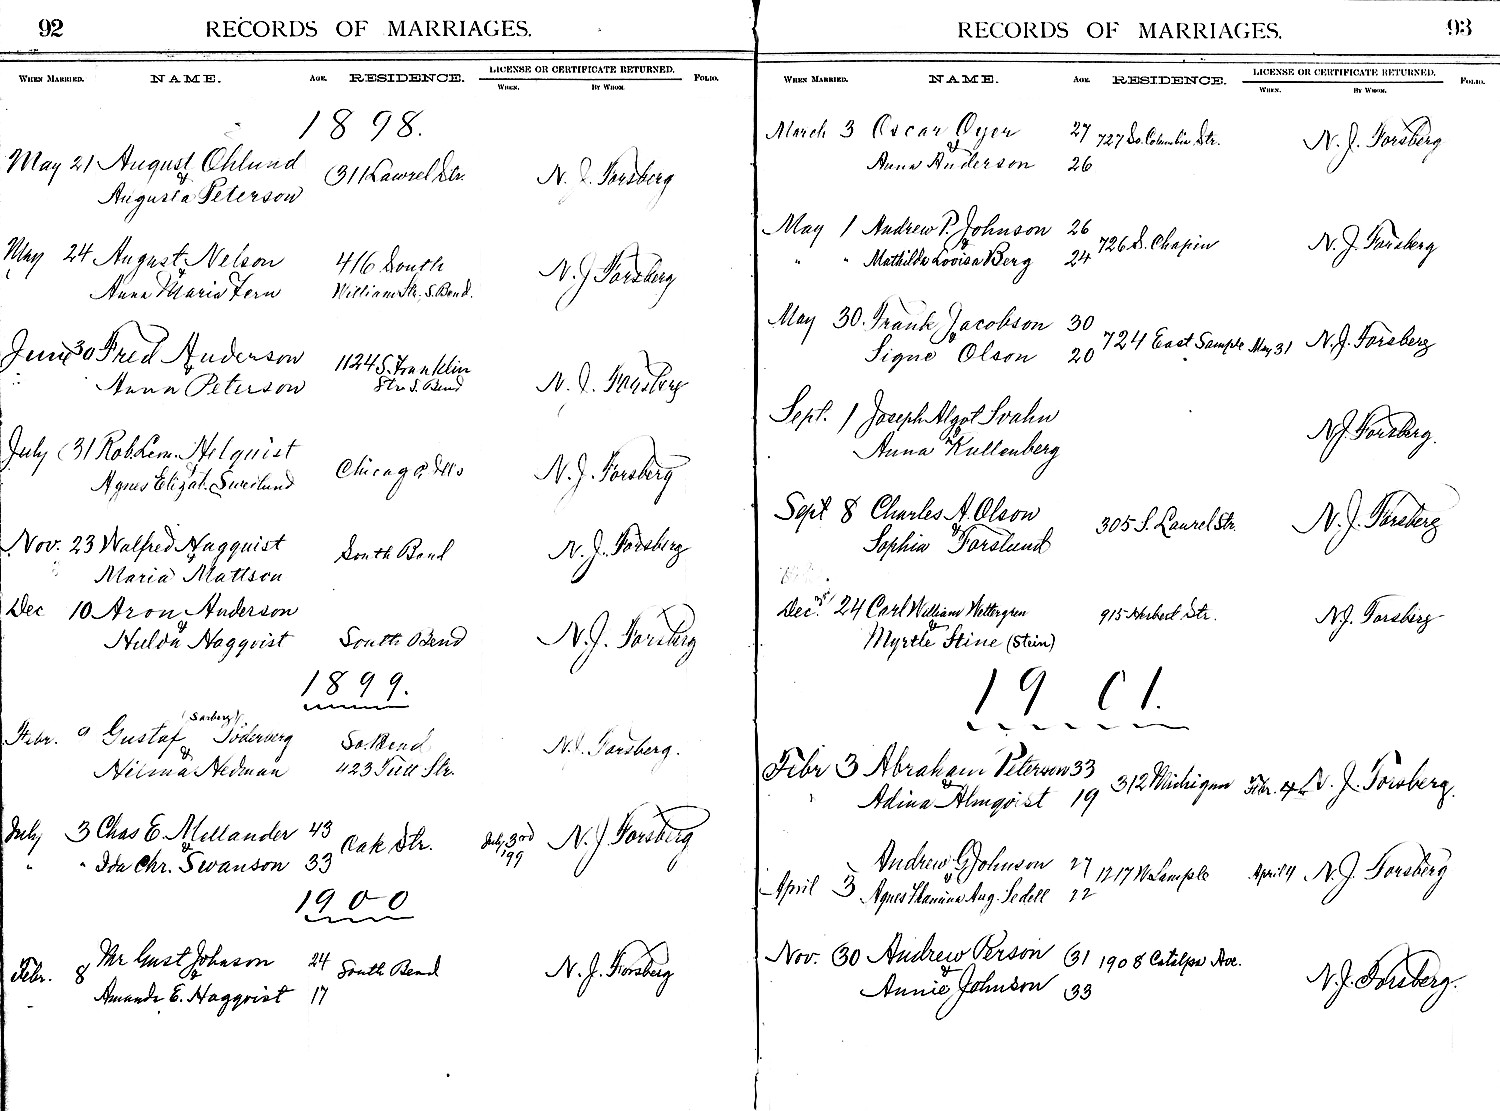 92
RECORDS OF MARRIAGES.
WHEN MARRIED. NAME. AGE. RESIDENCE. LICENSE OR CERTIFICATE RETURNED. FOLIO.
WHEN. BY WHOM.
1898.
May 21 August Ohlund
&
Augusta Peterson
311 Laurel Str.
N. J. Forsberg
May 24 August Nelson
&
Anna Maria Fern
416 South
William Str. S. Bend.
N. J. Forsberg
June 30 Fred Anderson
&
Anna Peterson
1124 S. Franklin
Str. S. Bend
N. J. Forsberg
July 31 Rob. Leon. Hilquist
&
Agnes Elizat.
Chicago, Ills
N. J. Forsberg
Nov. 23 Walfred Haqquist
&
Maria Mattson
South Bend
N. J. Forsberg
Dec 10 Aron Anderson
&
Hulda Haqqvist
South Bend
N. J. Forsberg
1899.
Febr. 9 Gustaf Söderberg
&
Hilma Hedman
So. Bend
423 Str.
N. J. Forsberg.
July 3 Chas E. Mellander 43
&
" " Ida Chr. Swanson 33
Oak Str.
July 3rd
'99
N. J. Forsberg
1900
Febr. 8 Mr Gust Johnson 24
&
Amanda E. Haqqvist 17
South Bend
N. J. Forsberg
93
RECORDS OF MARRIAGES.
WHEN MARRIED. NAME. AGE. RESIDENCE. LICENSE OR CERTIFICATE RETURNED. FOLIO.
WHEN. BY WHOM.
March 3 Oscar Oyer 27
&
Anna Anderson 26
727 So. Columbia Str.
N. J. Forsberg
May 1 Andrew P. Johnson 26
&
" " Mathilda Lovisa Berg 24
726 S. Chapin
N. J. Forsberg
May 30. Frank Jacobson 30
&
Signe Olson 20
724 East Sample May 31
N. J. Forsberg
Sept. 1 Joseph Algot Svahn
&
Anna Kullenberg
N J Forsberg.
Sept 8 Charles A. Olson
&
Sophia Forslund
305 S. Laurel Str.
N. J. Forsberg
Dec. 24 Carl William Wettergren
&
Myrtle Stine (Stein)
915 Herbert Str.
N. J. Forsberg
1901.
Febr 3 Abraham Peterson 33
&
Adina Almqvist 19
312 Michigan Febr. 4
N. J. Forsberg.
Andrew G Johnson 27
&
April 3 Agnes Aug. Sedell 22
1217 W. Sample April 4
N. J. Forsberg
Nov. 30 Andrew Person 31
&
Annie Johnson 33
1908 Catalpa Ave.
N. J. Forsberg.